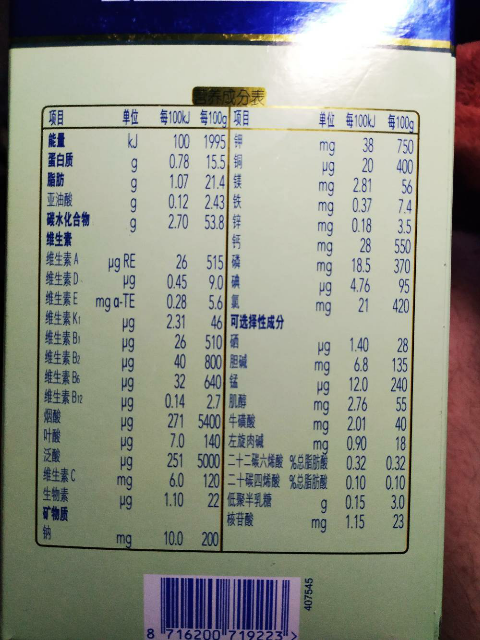 营养成分表
项目 单位 每100kJ 每100g
能量 kJ 100 1995
蛋白质 g 0.78 15.5
脂肪 g 1.07 21.4
亚油酸 g 0.12 2.43
碳水化合物 g 2.70 53.8
维生素
维生素A μg RE 26 515
维生素D μg 0.45 9.0
维生素E mg α-TE 0.28 5.6
维生素K1 μg 2.31 46
维生素B1 μg 26 510
维生素B2 μg 40 800
维生素B6 μg 32 640
维生素B12 μg 0.14 2.7
烟酸 μg 271 5400
叶酸 μg 7.0 140
泛酸 μg 251 5000
维生素C mg 6.0 120
生物素 μg 1.10 22
矿物质
钠 mg 10.0 200
项目 单位 每100kJ 每100g
钾 mg 38 750
铜 μg 20 400
镁 mg 2.81 56
铁 mg 0.37 7.4
锌 mg 0.18 3.5
钙 mg 28 550
磷 mg 18.5 370
碘 μg 4.76 95
氯 mg 21 420
可选择性成分
硒 μg 1.40 28
胆碱 mg 6.8 135
锰 μg 12.0 240
肌醇 mg 2.76 55
牛磺酸 mg 2.01 40
左旋肉碱 mg 0.90 18
二十二碳六烯酸 %总脂肪酸 0.32 0.32
二十碳四烯酸 %总脂肪酸 0.10 0.10
低聚半乳糖 g 0.15 3.0
核苷酸 mg 1.15 23
407545
8 716200 719223 >